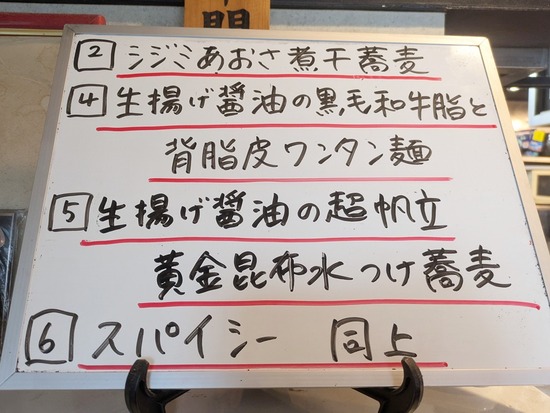 2 シジミあおさ煮干蕎麦
4 生揚げ醤油の黒毛和牛脂と
背脂皮ワンタン麺
5 生揚げ醤油の超帆立
黄金昆布水つけ蕎麦
6 スパイシー 同上